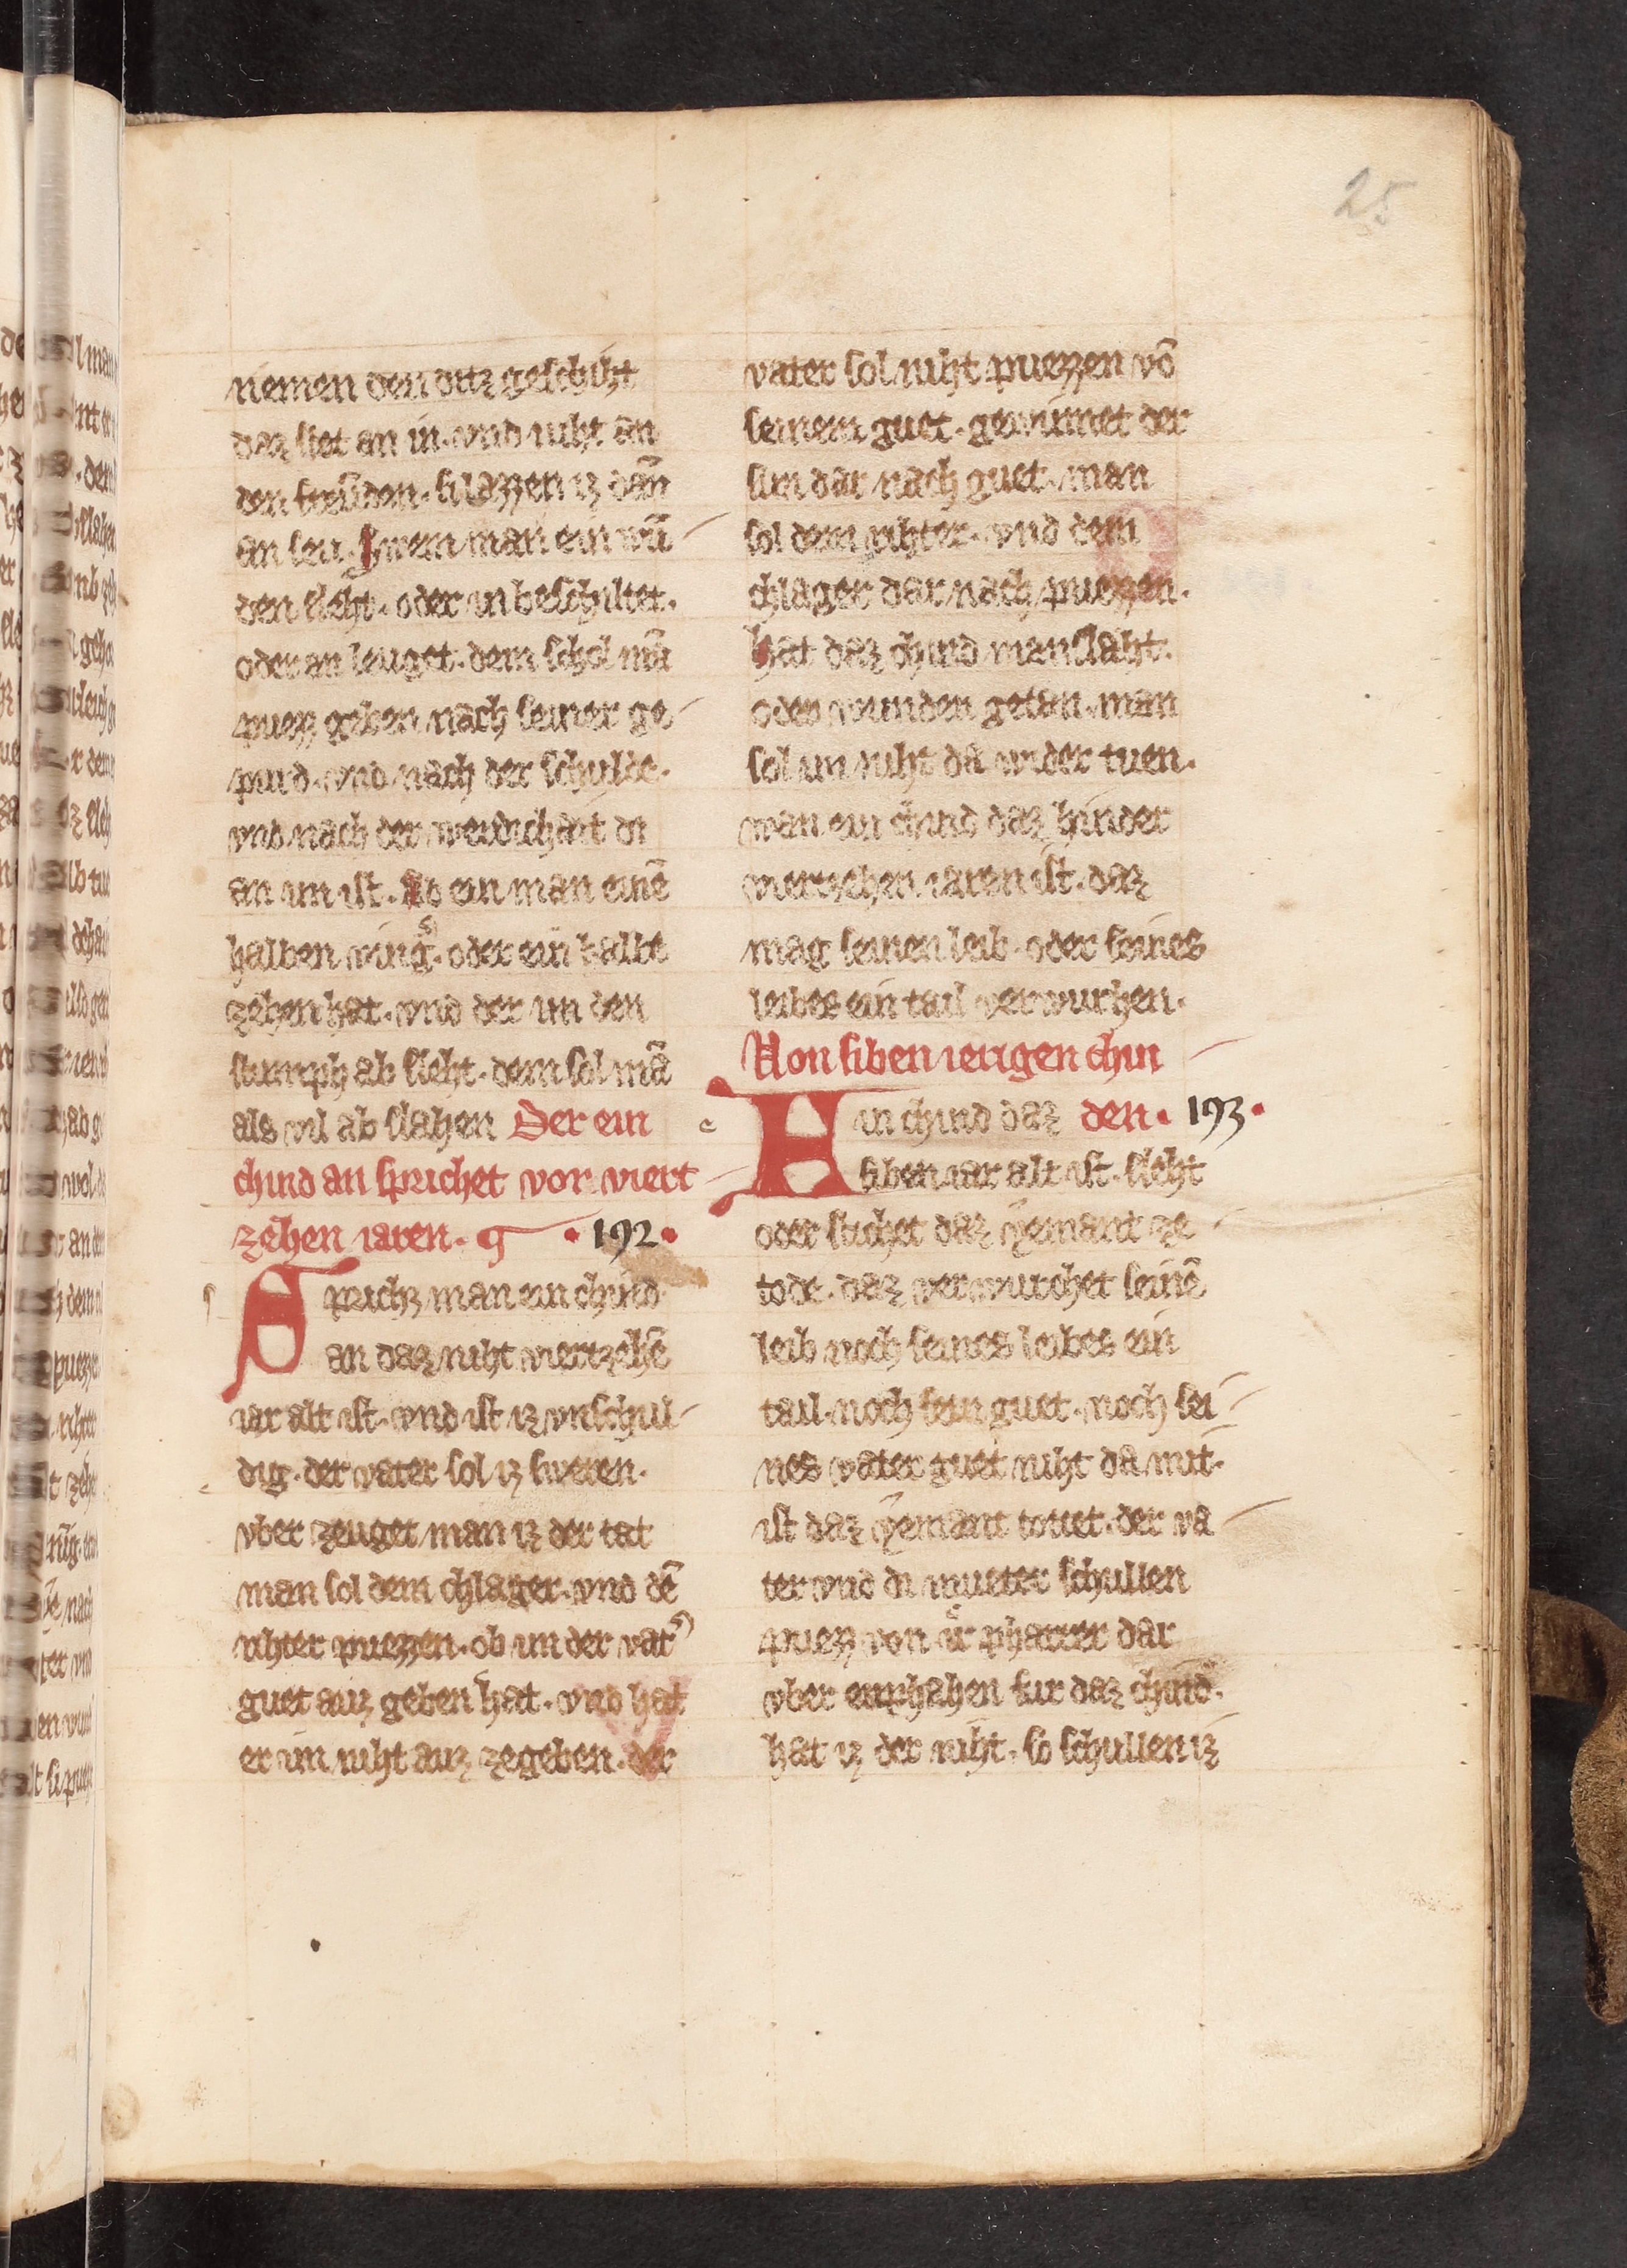 25
niemen den ditz geschiht
daz stet an in. vnd niht an
den freu̅den. si lazzen iz dan̅
an sen. Swem man ein wu̅
den sleht. oder in beschiltet.
oder an leuget. dem schol ma̅
puezz geben nach seiner ge
purd. vnd nach der schulde.
vnd nach der werdichait di
an im ist. Ab ein man eine̅
halben ving͛. oder ein halbe
zehen hat. vnd der im den
stumph ab sleht. dem sol ma̅
als vil ab slahen Der ein
chind an sprichet vor viert
zehen iaren. · 192 ·
Sprichz man ein chind
an daz niht viertzehe̅
iar alt ist. vnd ist iz vnschul
dig. der vater sol iz sweren.
vber zeuget man iz der tat
man sol dem chlager. vnd de̅
rihter puezzen. ob im der vat͛
guet auz geben hat. vnd hat
er im niht auz zegeben. der
vater sol niht puezzen vo̅
seinem guet. gewinnet der
sun dar nach guet. man
sol dem rihter. vnd dem
chlager dar nach puezzen.
hat daz chind manslaht.
oder wunden getan. man
sol im niht da wider tuen.
wan ein chind daz hinder
viertzehen iaren ist. daz
mag seinen leib. oder seines
leibes ein tail verwurhen.
Von siben ierigen chin
den · 193 ·
Ein chind daz
siben iar alt ist. sleht
oder stichet daz yemant ze
tode. daz verwurchet seine̅
leib noch seines leibes ein
tail. noch sein guet. noch sei
nes vater guet niht da mit.
ist daz yemant tottet. der va
ter vnd di mueter schullen
puezz von ir pharrer dar
vber emphahen fur daz chind.
hat iz der niht. so schullen iz